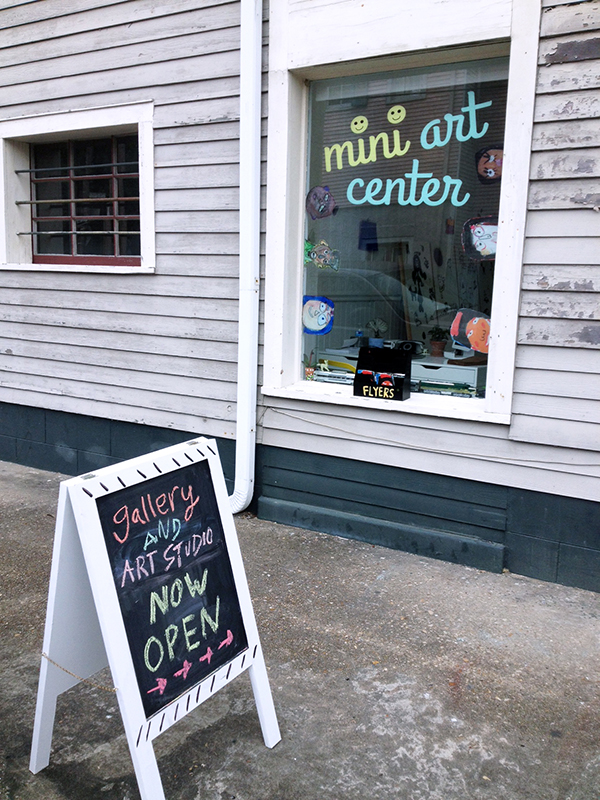 mini art
center
FLYERS
gallery
AND
ART STUDIO
NOW
OPEN